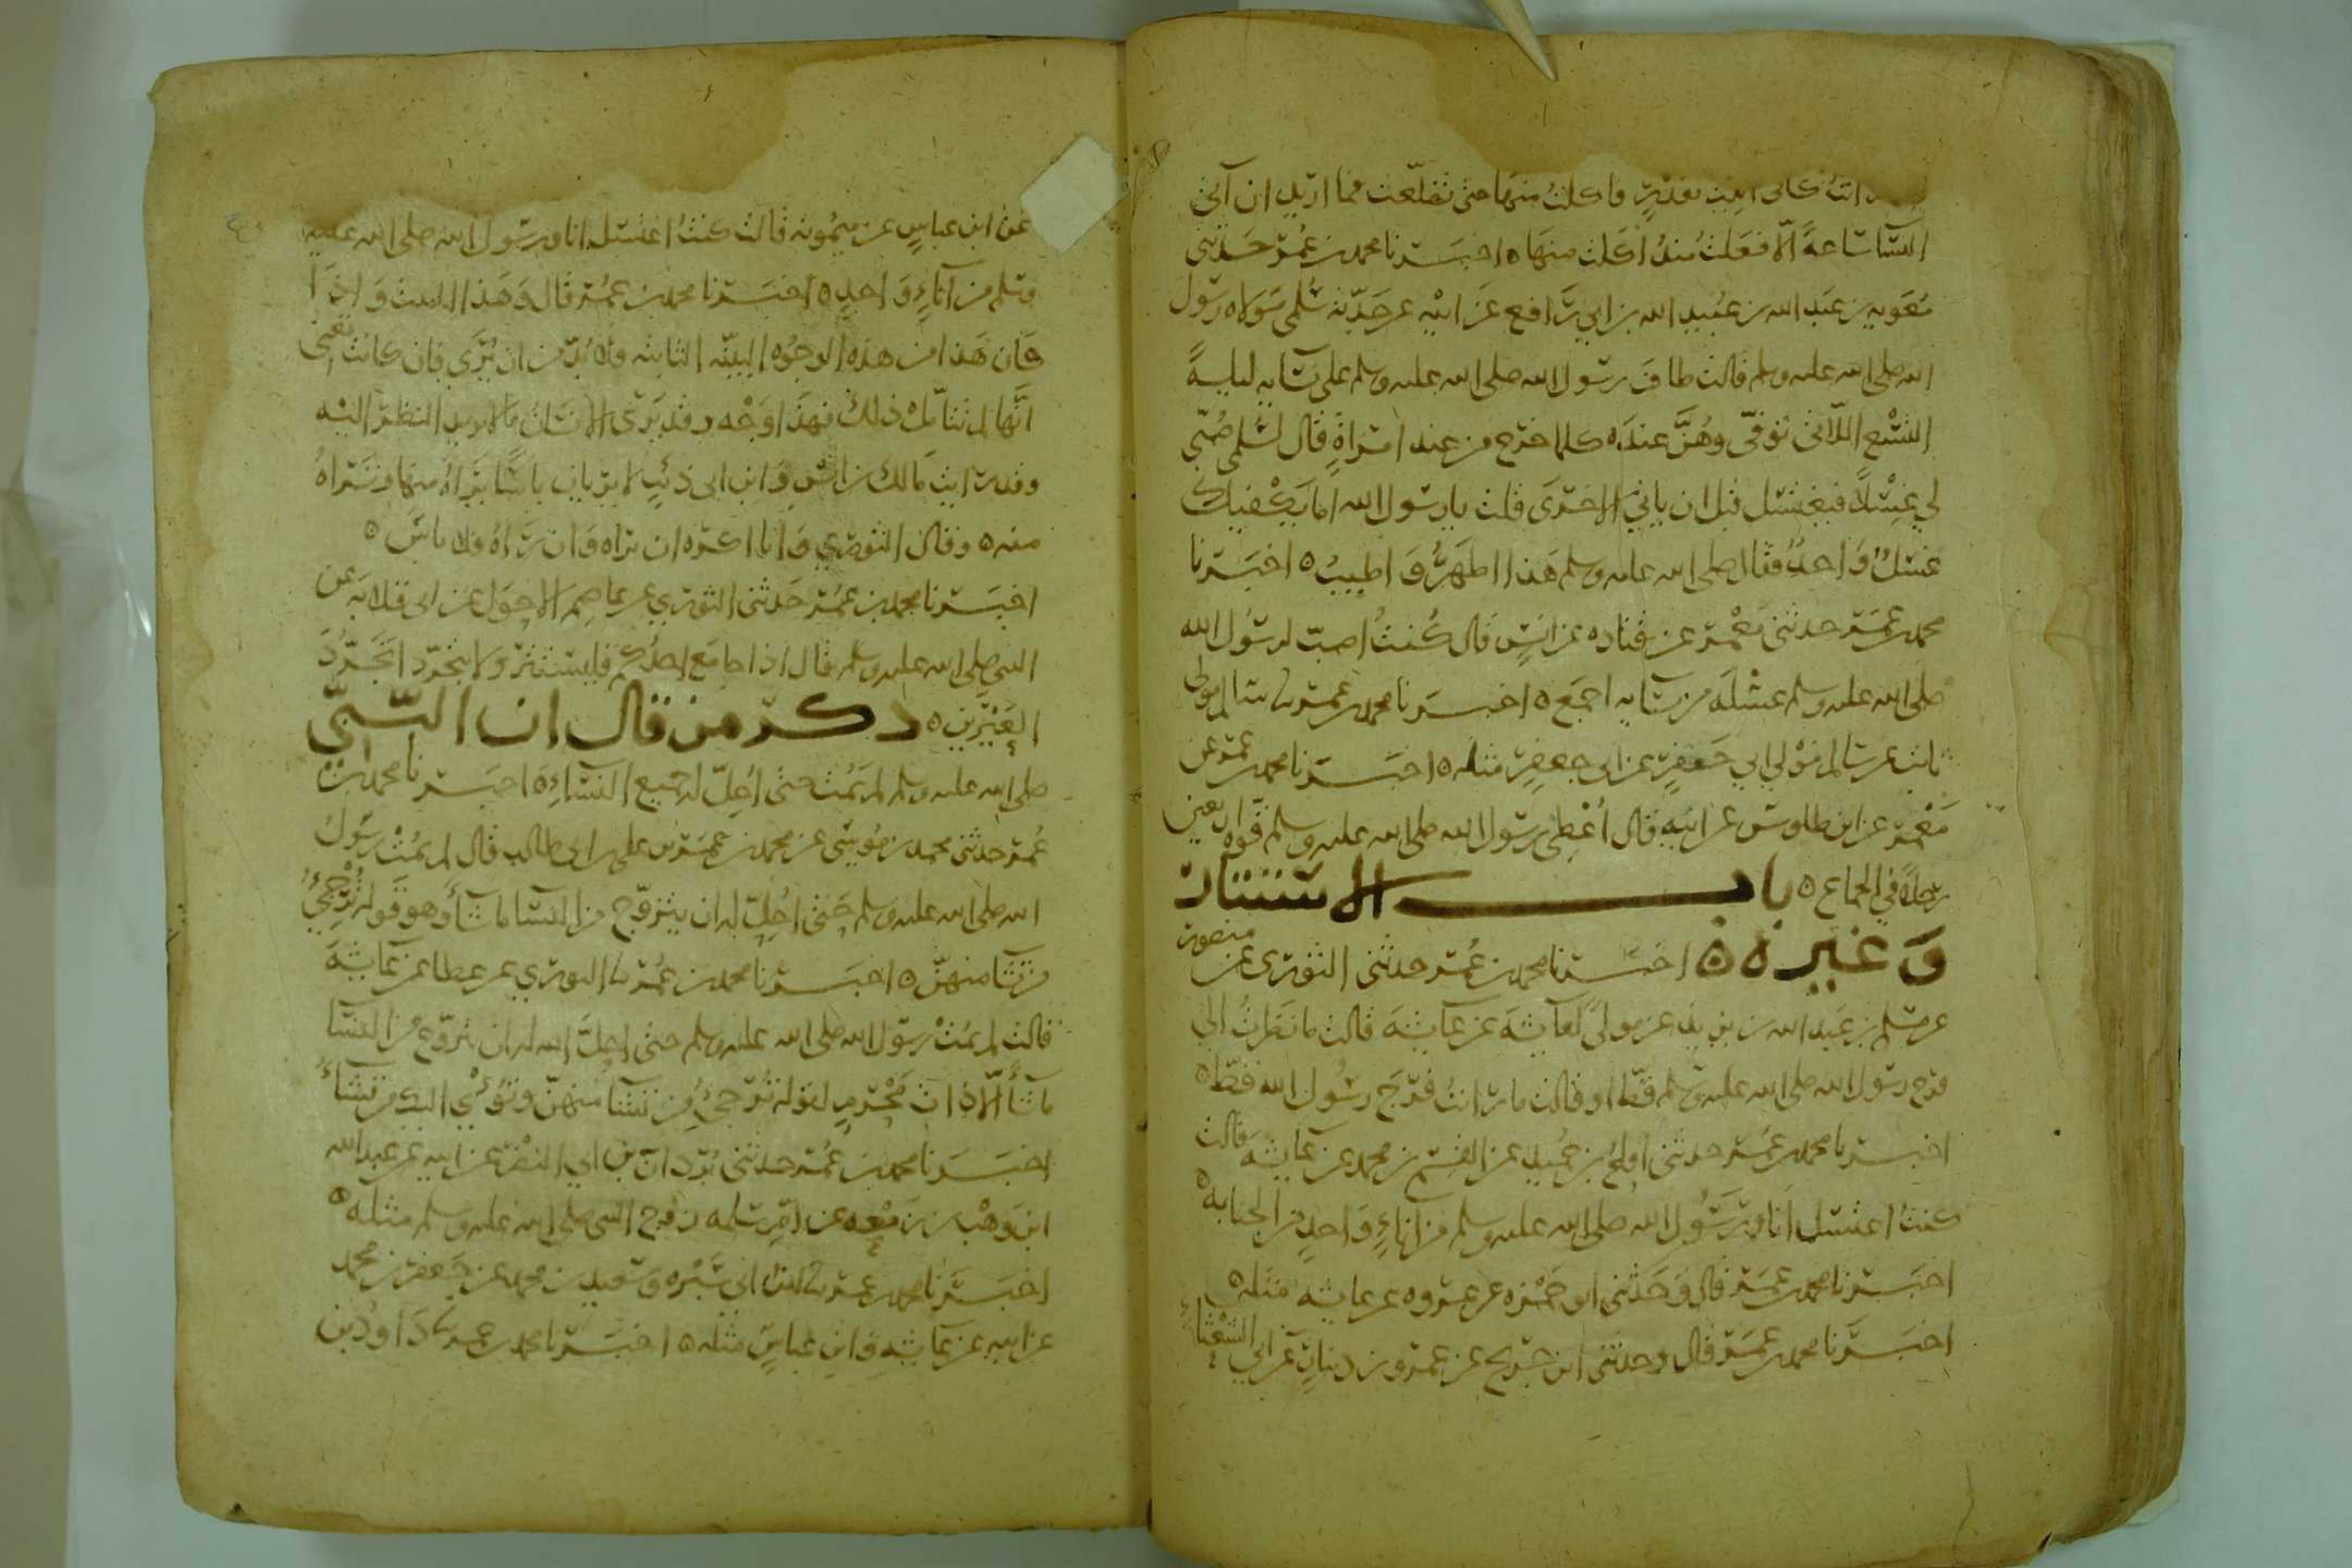 اتيت كانى اتيت بقدر فاكلت منها حتى تضلعت فما اريد ان آتى
النسا ساعة الا فعلت منذ اكلت منها ه اخبرنا محمد بن عمر حدثنى
معويه بن عبد الله بن عبيد الله بن ابي رافع عن ابيه عن جدته سلمى مولاه رسول
الله صلى الله عليه وسلم قالت طاف رسول الله صلى الله عليه وسلم على نسايه ليلة
التسع اللاتى توفى وهن عنده كلما خرج من عند امراة قال لسلمى صبى
لي غسلا فيغتسل قبل ان ياتي الاخرى قلت يا رسول الله اما يكفيك
غسل واحد فقال صلى الله عليه وسلم هذا اطهر واطيب ه اخبرنا
محمد بن عمر حدثنى معمر عن قتاده عن انس قال كنت اصب لرسول الله
صلى الله عليه وسلم غسله من نسايه اجمع ه اخبرنا محمد بن عمر نا سالم مولى
ثابت عن سالم مولى ابي جعفر عن ابى جعفر مثله ه اخبرنا محمد بن عمر عن
معمر عن ابن طاوس عن ابيه قال أعطى رسول الله صلى الله عليه وسلم قوه اربعين
رجلا في الجماع ه باب الاستتار
وغيره ه اخبرنا محمد بن عمر حدثنى الثورى عن منصور
عن مسلم بن عبد الله بن يزيد عن مولى لعايشة عن عايشة قالت ما نظرت الى
فرج رسول الله صلى الله عليه وسلم قط او قالت ما رايت فرج رسول الله قط ه
اخبرنا محمد بن عمر حدثنى افلح بن حميد عن القسم بن محمد عن عايشة قالت
كنت اغتسل انا ورسول الله صلى الله عليه وسلم من اناء واحد من الجنابه ه
اخبرنا محمد بن عمر قال وحدثنى ابو حمزه عن عروه عن عايشه مثله ه
اخبرنا محمد بن عمر قال وحدثنى ابن جريج عن عمرو بن دينار عن ابي الشعثاء
عن ابن عباس عن ميمونه قالت كنت اغتسل انا ورسول الله صلى الله عليه
وسلم من اناء واحد ه اخبرنا محمد بن عمر قال وهذا الثبت واذا
كان هذا من هذه الوجوه البينه الثابته ولا بد من ان يرى فان كانت تعنى
انها لم تتامل ذلك فهذا وجه وقد يرى الانسان ما لا يريد النظر اليه
وقد رايت مالك بن انس وابن ابى ذئب لا يريان باسا يراه منها وتراه
منه ه وقال الثوري وانا اكره ان تراه وان راه فلا باس ه
اخبرنا محمد بن عمر حدثنى الثوري عن عاصم الاحول عن ابى قلابه عن
النبى صلى الله عليه وسلم قال اذا جامع احدكم فليستتر ولا يتجرد تجرد
العيرين ه ذكر من قال ان النبي
صلى الله عليه وسلم لم يمت حتى احل له جميع النساء ه اخبرنا محمد بن
عمر حدثنى محمد بن موسى عن محمد بن عمر بن على بن ابى طالب قال لم يمت رسول
الله صلى الله عليه وسلم حتى احل له ان يتزوج من النسا ما شا وهو قوله ترجئ
من تشا منهن ه اخبرنا محمد بن عمر نا الثوري عن عطا عن عايشة
قالت لم يمت رسول الله صلى الله عليه وسلم حتى احل الله له ان يتزوج من النسا
ما شا الا ذات محرم لقوله ترجئ من تشا منهن وتؤي اليك من تشاء
اخبرنا محمد بن عمر حدثنى بردان بن ابي النضر عن ابيه عن عبد الله
ابن وهب بن زمعه عن ام سلمه زوج النبى صلى الله عليه وسلم مثله ه
اخبرنا محمد بن عمر نا ابن ابي سبره وسعيد بن محمد عن جعفر بن محمد
عن ابيه عن عايشه وابن عباس مثله ه اخبرنا محمد بن عمر نا داود بن